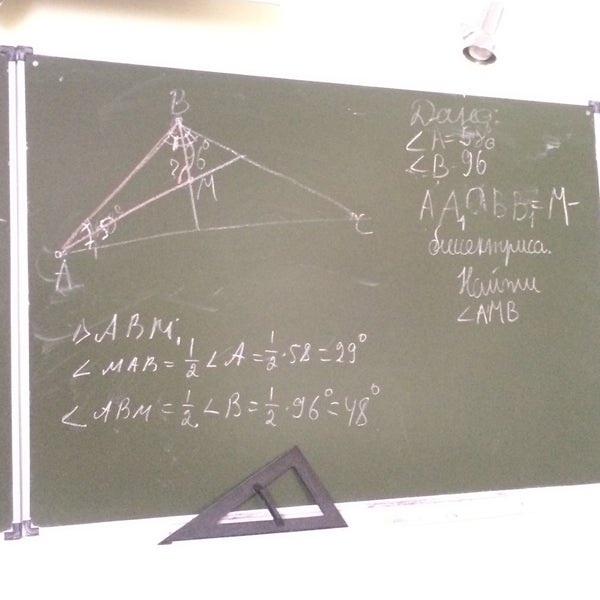 B
M
A
C
Дано:
∠A=58°
∠B-96
AA₁∩BB₁=M-
биссектриса.
Найти
∠AMB
△ABM;
∠MAB=1/2∠A=1/2·58=29°
∠ABM=1/2∠B=1/2·96°=48°